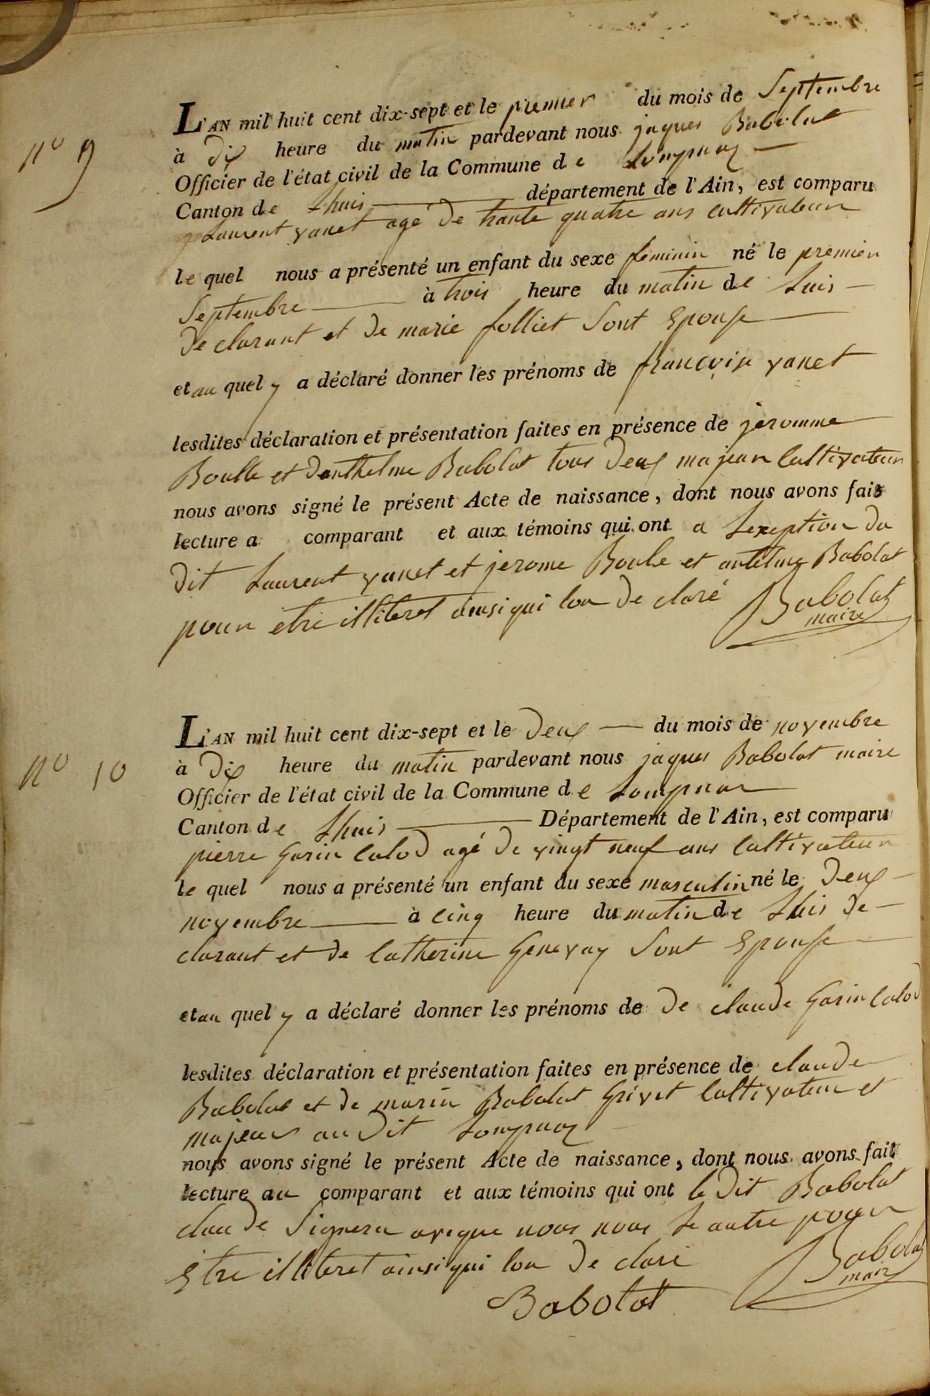 nº 9
L'AN mil huit cent dix-sept et le premier du mois de Septembre
à dix heure du matin pardevant nous jaques Babolat
Officier de l'état civil de la Commune de Lompnaz
Canton de Lhuis département de l'Ain, est comparu
Laurent yanet agé de trante quatre ans cultivateur
le quel nous a présenté un enfant du sexe féminin né le premier
Septembre à trois heure du matin de Luis
declarant et de marie folliet sont Epouse
et au quel y a déclaré donner les prénoms de françoise yanet
lesdites déclaration et présentation faites en présence de jeromme
Boulle et danthelme Babolat tous deux majeur Cultivateur
nous avons signé le présent Acte de naissance, dont nous avons fait
lecture a comparant et aux témoins qui ont a Lexeption du
dit Laurent yanet et jerome Boule et antelme Babolat
pour etre illiteret ainsi qui lon de claré Babolat
maire
nº 10
L'AN mil huit cent dix-sept et le deux du mois de novembre
à dix heure du matin pardevant nous jaques Babolat maire
Officier de l'état civil de la Commune de Lompnaz
Canton de Lhuis Département de l'Ain, est comparu
pierre Garin Calod agé de vingt neuf ans Cultivateur
le quel nous a présenté un enfant du sexe masculin né le deux
novembre à cinq heure du matin de Luis de
clarant et de Catherine Genevay sont Epouse
et au quel y a déclaré donner les prénoms de de claude Garin Calod
lesdites déclaration et présentation faites en présence de claude
Babolat et de marin Babolat Grivet Cultivateur et
majeur au dit Lompnaz
nous avons signé le présent Acte de naissance, dont nous avons fait
lecture au comparant et aux témoins qui ont le dit Babolat
clau de Signera aveque nous nous le autre pour
Etre illiteret ainsi qui lon de claré Babolat
maire
Babolat